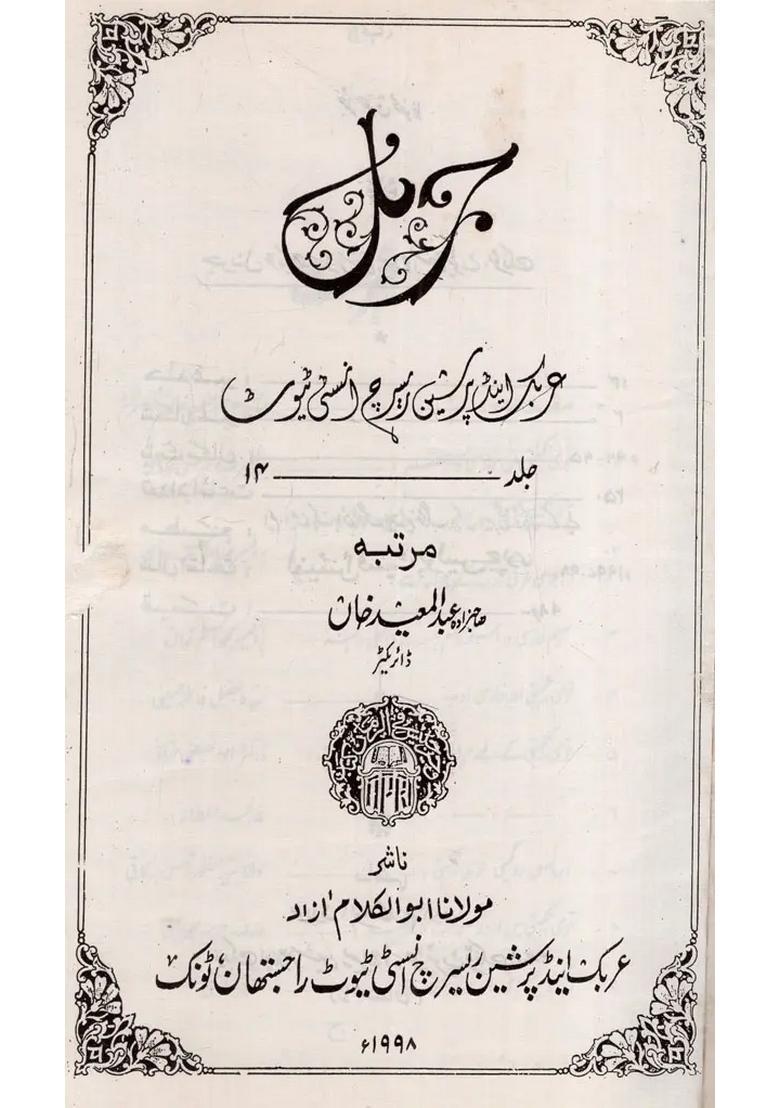 جرنل
عربک اینڈ پرشین ریسرچ انسٹی ٹیوٹ
جلد ــــــــ ۱۴
مرتبہ
صاحبزادہ عبدالمعید خان
ڈائریکٹر
ناشر
مولانا ابوالکلام آزاد
عربک اینڈ پرشین ریسرچ انسٹی ٹیوٹ راجستھان، ٹونک
۱۹۹۸ء